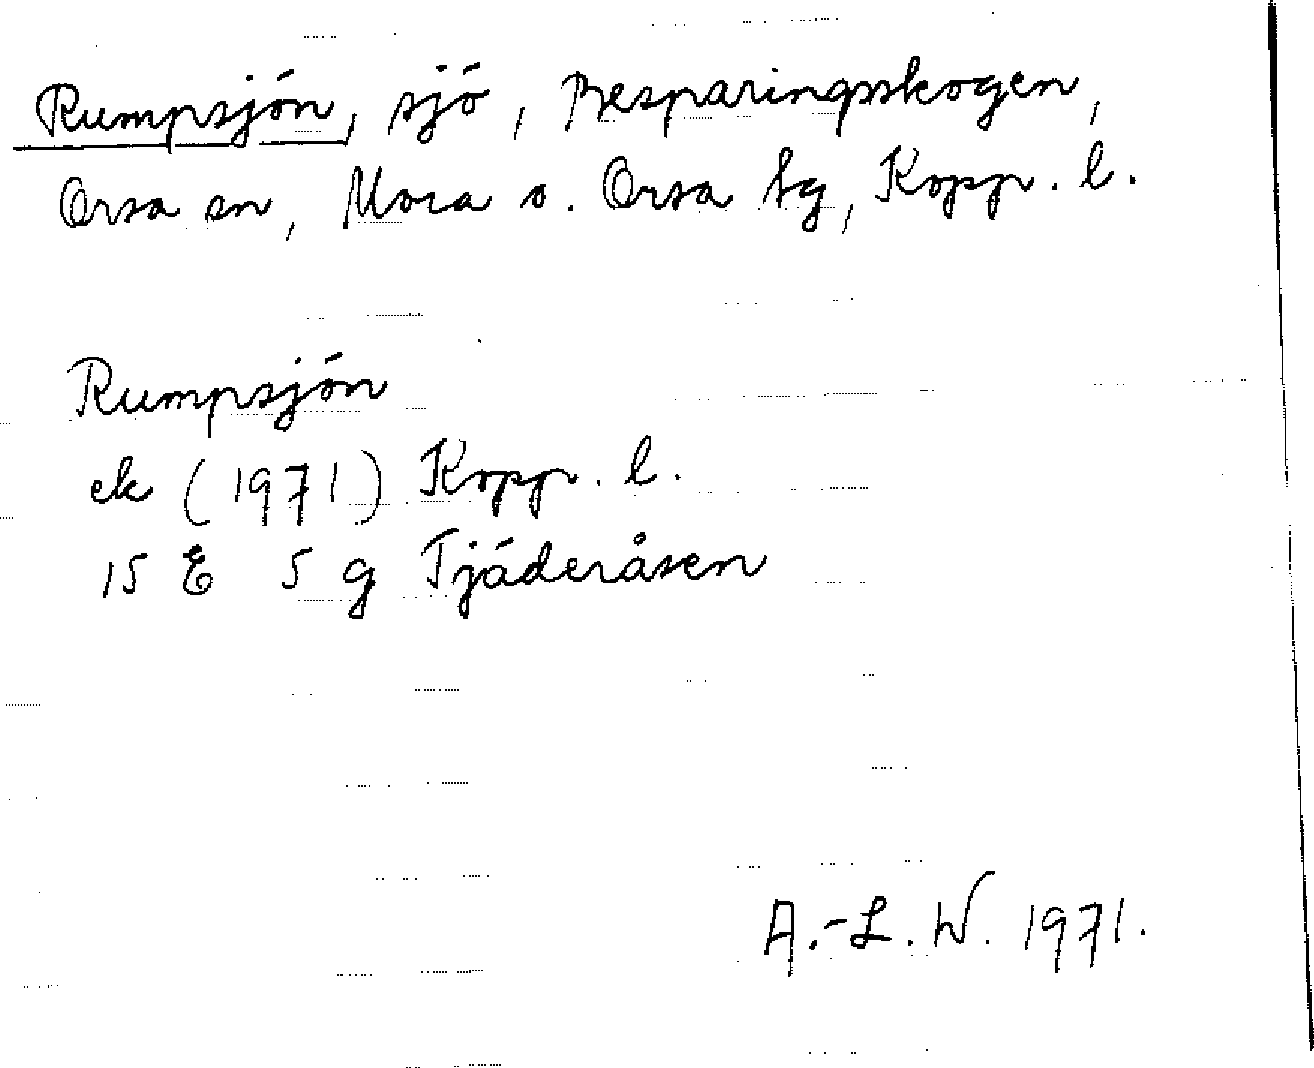 Rumpsjön, sjö, Besparingsskogen,
Orsa sn, Mora o. Orsa tg, Kopp. l.
Rumpsjön
ek (1971) Kopp. l.
15 E 5 g Tjäderåsen
A.-L. W. 1971.